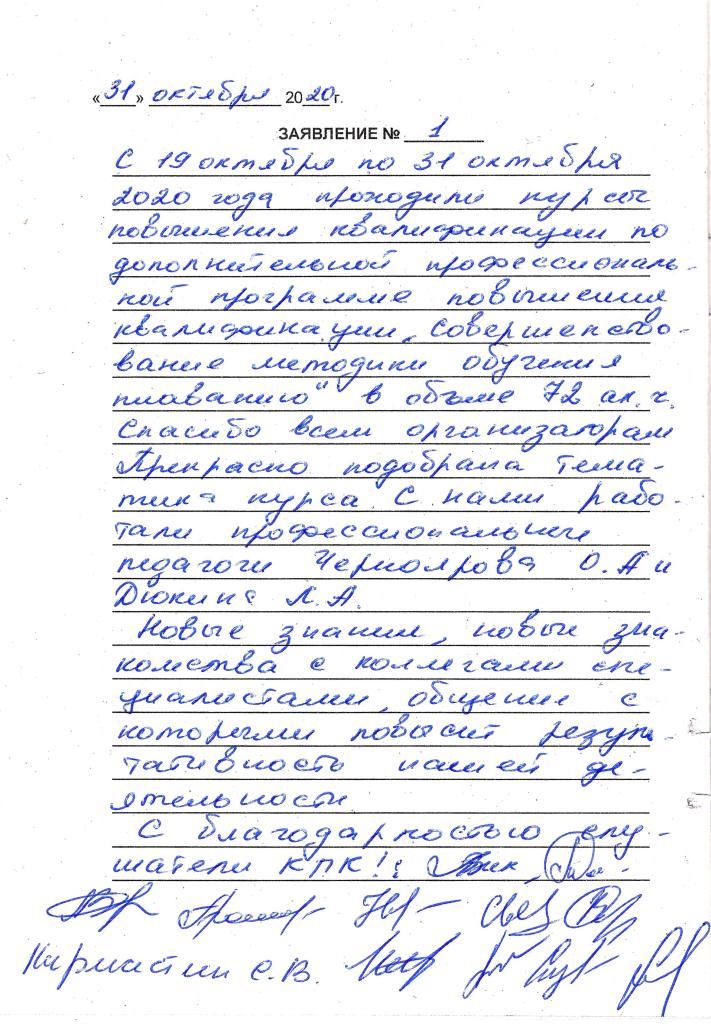 «31» октября 2020г.
ЗАЯВЛЕНИЕ № 1
С 19 октября по 31 октября
2020 года проходили курсы
повышения квалификации по
дополнительной профессиональ-
ной программе повышения
квалификации „Совершенство-
вание методики обучения
плаванию" в объёме 72 ак.ч.
Спасибо всем организаторам
Прекрасно подобрана тема-
тика курса. С нами рабо-
тали профессиональные
педагоги Черноярова О.А и
Дюкина Л.А.
Новые знания, новые зна-
комства с коллегами спе-
циалистами, общение с
которыми повысит резуль-
тативность нашей де-
ятельности
С благодарностью слу-
шатели КПК!:
С.В.